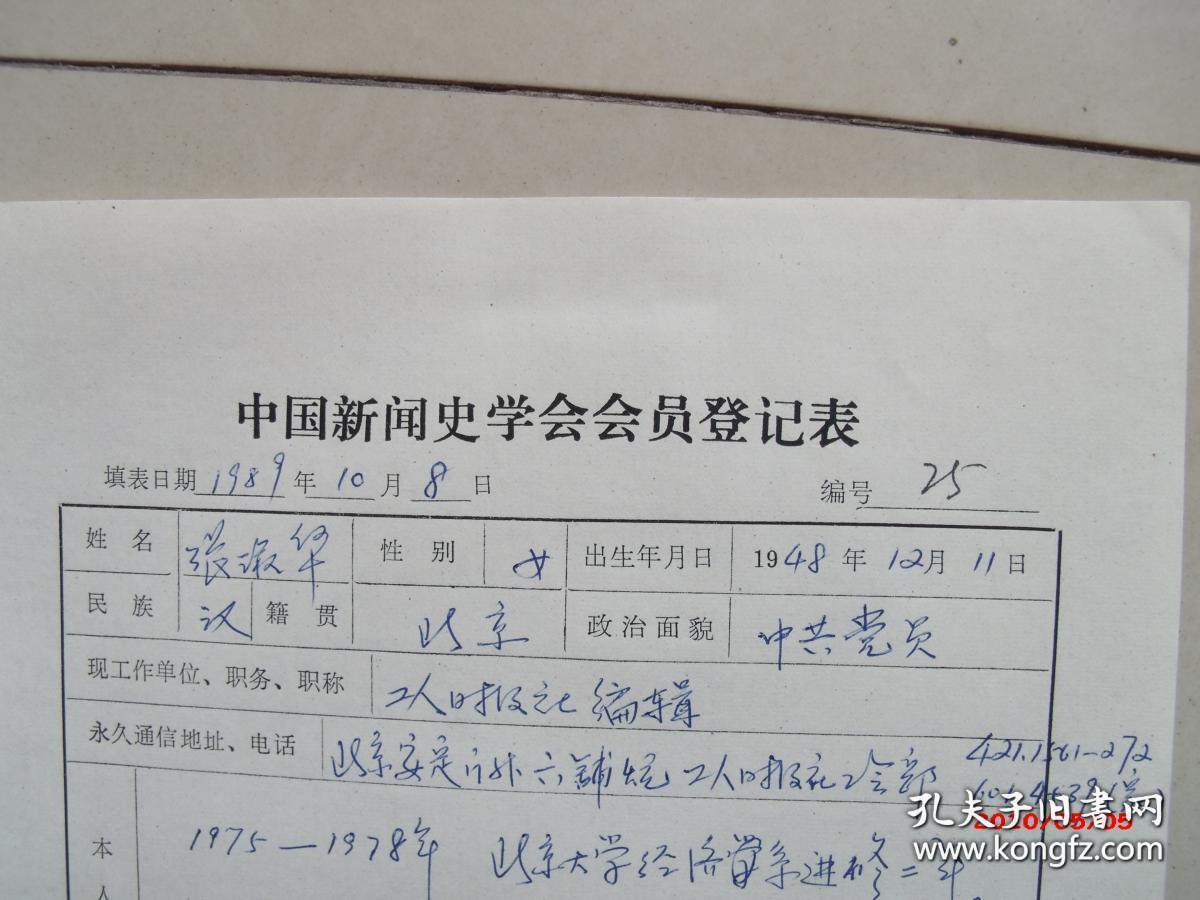 中国新闻史学会会员登记表
填表日期 1989 年 10 月 8 日 编号 25
姓 名 张淑华 性 别 女 出生年月日 1948 年 12月 11日
民 族 汉 籍 贯 北京 政治面貌 中共党员
现工作单位、职务、职称 工人日报社 编辑
永久通信地址、电话 北京安定门外六铺炕 工人日报社工会部 421.1561-272
本人
1975—1978年 北京大学经济系进修二年
孔夫子旧书网
2020/05/05
www.kongfz.com